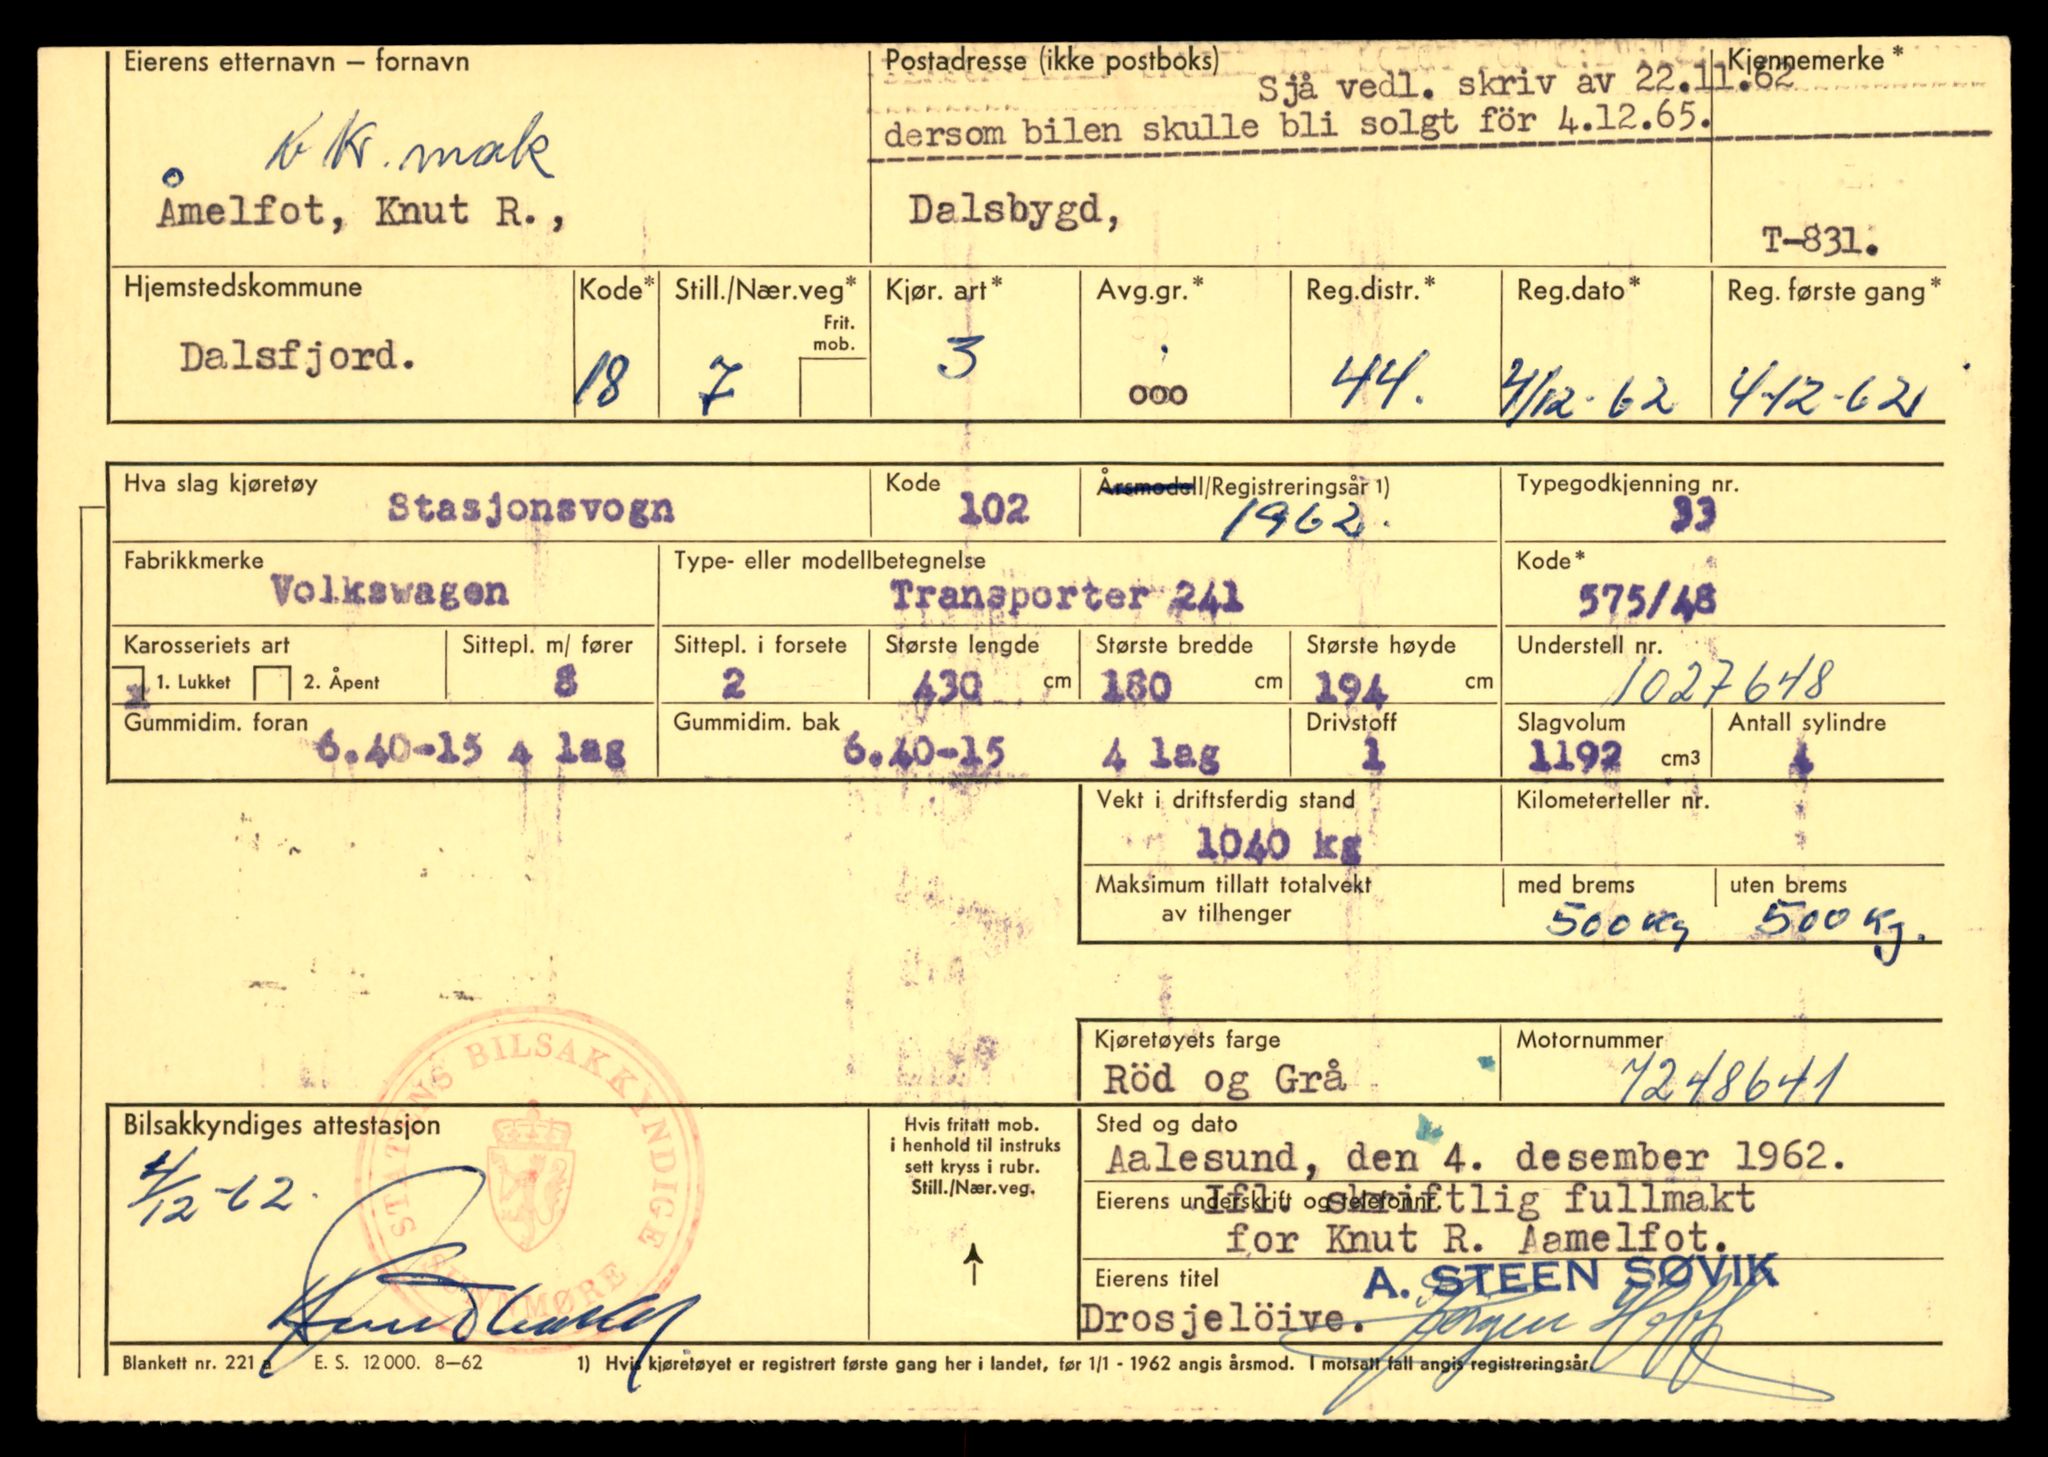 Eierens etternavn – fornavn
Postadresse (ikke postboks)
Kjennemerke*
Sjå vedl. skriv av 22.11.62
dersom bilen skulle bli solgt för 4.12.65.
Kr. mak
Åmelfot, Knut R.,
Dalsbygd,
T-831.
Hjemstedskommune
Kode*
Still./Nær.veg*
Frit. mob.
Kjør. art*
Avg.gr.*
Reg.distr.*
Reg.dato*
Reg. første gang*
Dalsfjord.
18
7
3
000
44.
4/12-62
4-12-62
Hva slag kjøretøy
Stasjonsvogn
Kode
102
Årsmodell/Registreringsår 1)
1962.
Typegodkjenning nr.
33
Fabrikkmerke
Volkswagen
Type- eller modellbetegnelse
Transporter 241
Kode*
575/48
Karosseriets art
x 1. Lukket
2. Åpent
Sittepl. m/ fører
8
Sittepl. i forsete
2
Største lengde
430 cm
Største bredde
180 cm
Største høyde
194 cm
Understell nr.
1027648
Gummidim. foran
6.40-15 4 lag
Gummidim. bak
6.40-15 4 lag
Drivstoff
1
Slagvolum
1192 cm3
Antall sylindre
4
Vekt i driftsferdig stand
1040 kg
Kilometerteller nr.
Maksimum tillatt totalvekt
av tilhenger
med brems
500 kg
uten brems
500 kg.
Kjøretøyets farge
Röd og Grå
Motornummer
7248641
STATENS BILSAKKYNDIGE
SUNNMØRE
Bilsakkyndiges attestasjon
4/12-62.
Hvis fritatt mob.
i henhold til instruks
sett kryss i rubr.
Still./Nær.veg.
Sted og dato
Aalesund, den 4. desember 1962.
Eierens underskrift og telefonnr.
Ifl. skriftlig fullmakt
for Knut R. Aamelfot.
Eierens titel
A. STEEN SØVIK
Drosjelöive.
Jørgen Hoff
Blankett nr. 221 a
E. S. 12 000. 8–62
1) Hvis kjøretøyet er registrert første gang her i landet, før 1/1 - 1962 angis årsmod. I motsatt fall angis registreringsår.